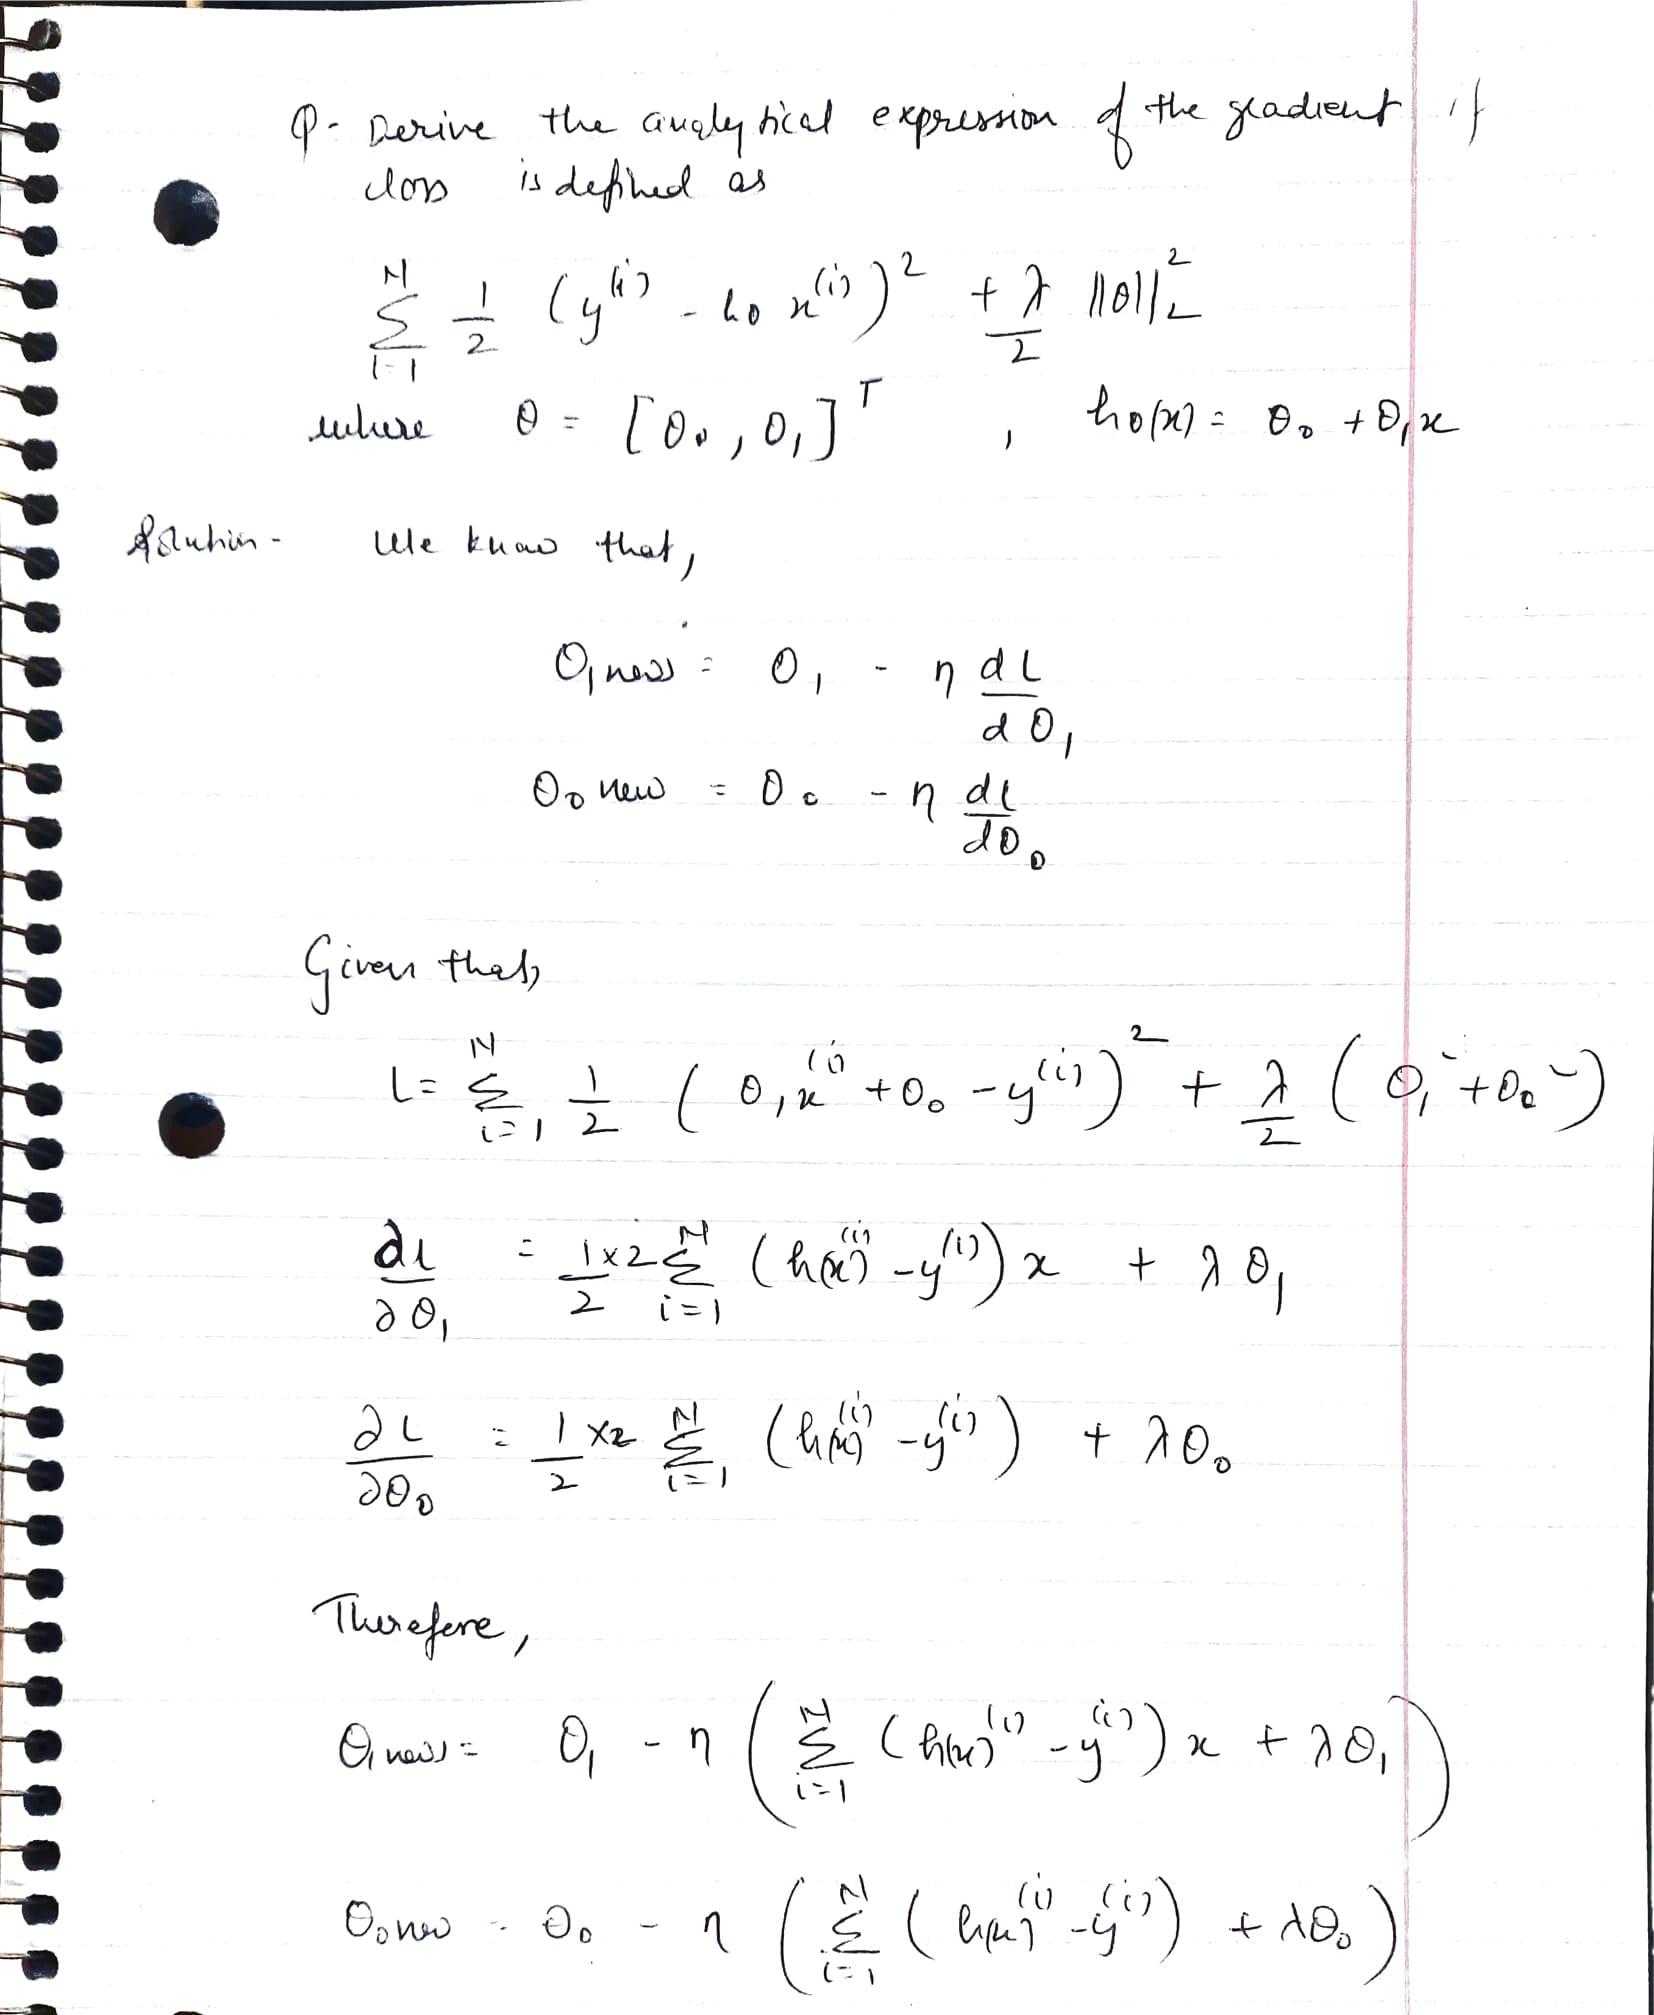 Q- Derive the analytical expression of the gradient if
loss is defined as
N Σ i=1 1/2 (y^(i) - hθ x^(i))^2 + λ/2 ||θ||_2^2
where θ = [θ₀, θ₁]^T , hθ(x) = θ₀ + θ₁x
Solution- We know that,
θ₁ new = θ₁ - η dL/dθ₁
θ₀ new = θ₀ - η dL/dθ₀
Given that,
L = N Σ i=1 1/2 (θ₁x^(i) + θ₀ - y^(i))^2 + λ/2 (θ₁² + θ₀²)
∂L/∂θ₁ = 1/2 x 2 N Σ i=1 (h(x)^(i) - y^(i)) x + λθ₁
∂L/∂θ₀ = 1/2 x 2 N Σ i=1 (h(x)^(i) - y^(i)) + λθ₀
Therefore,
θ₁ new = θ₁ - η (N Σ i=1 (h(x)^(i) - y^(i)) x + λθ₁)
θ₀ new = θ₀ - η (N Σ i=1 (h(x)^(i) - y^(i)) + λθ₀)